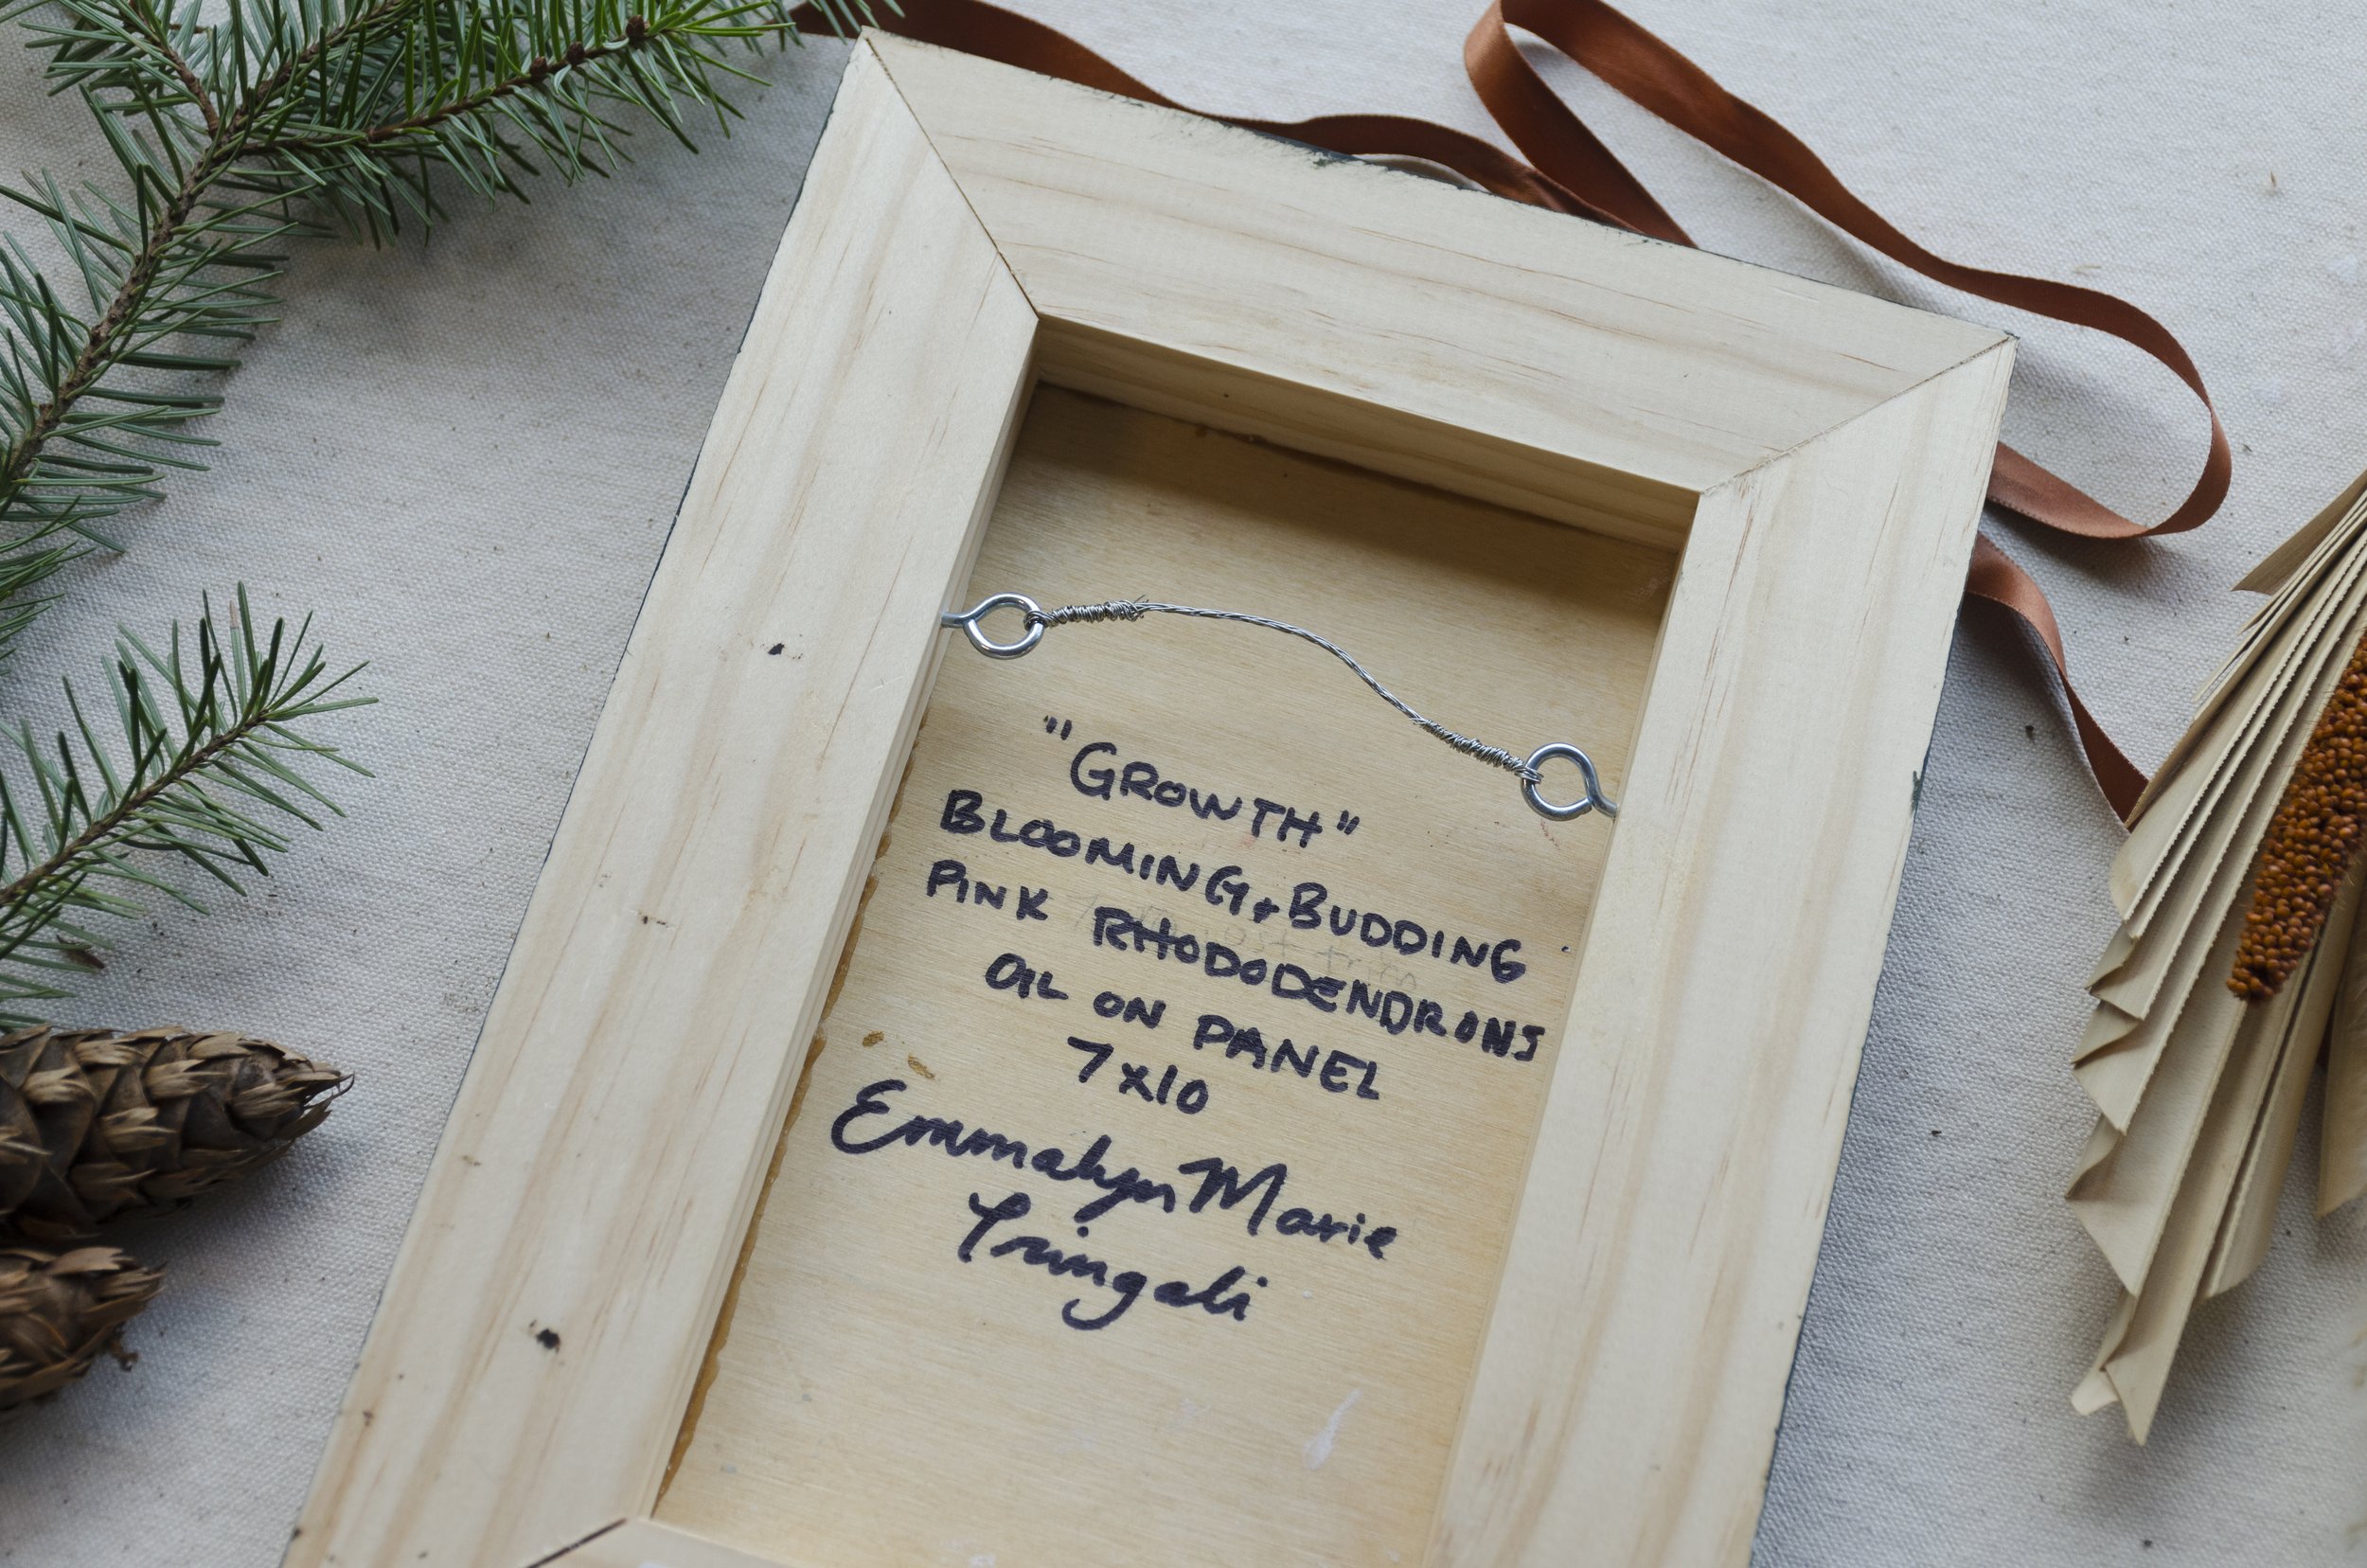 "GROWTH"
BLOOMING + BUDDING
PINK RHODODENDRONS
OIL ON PANEL
7x10
Emmalyn Marie
Tringali